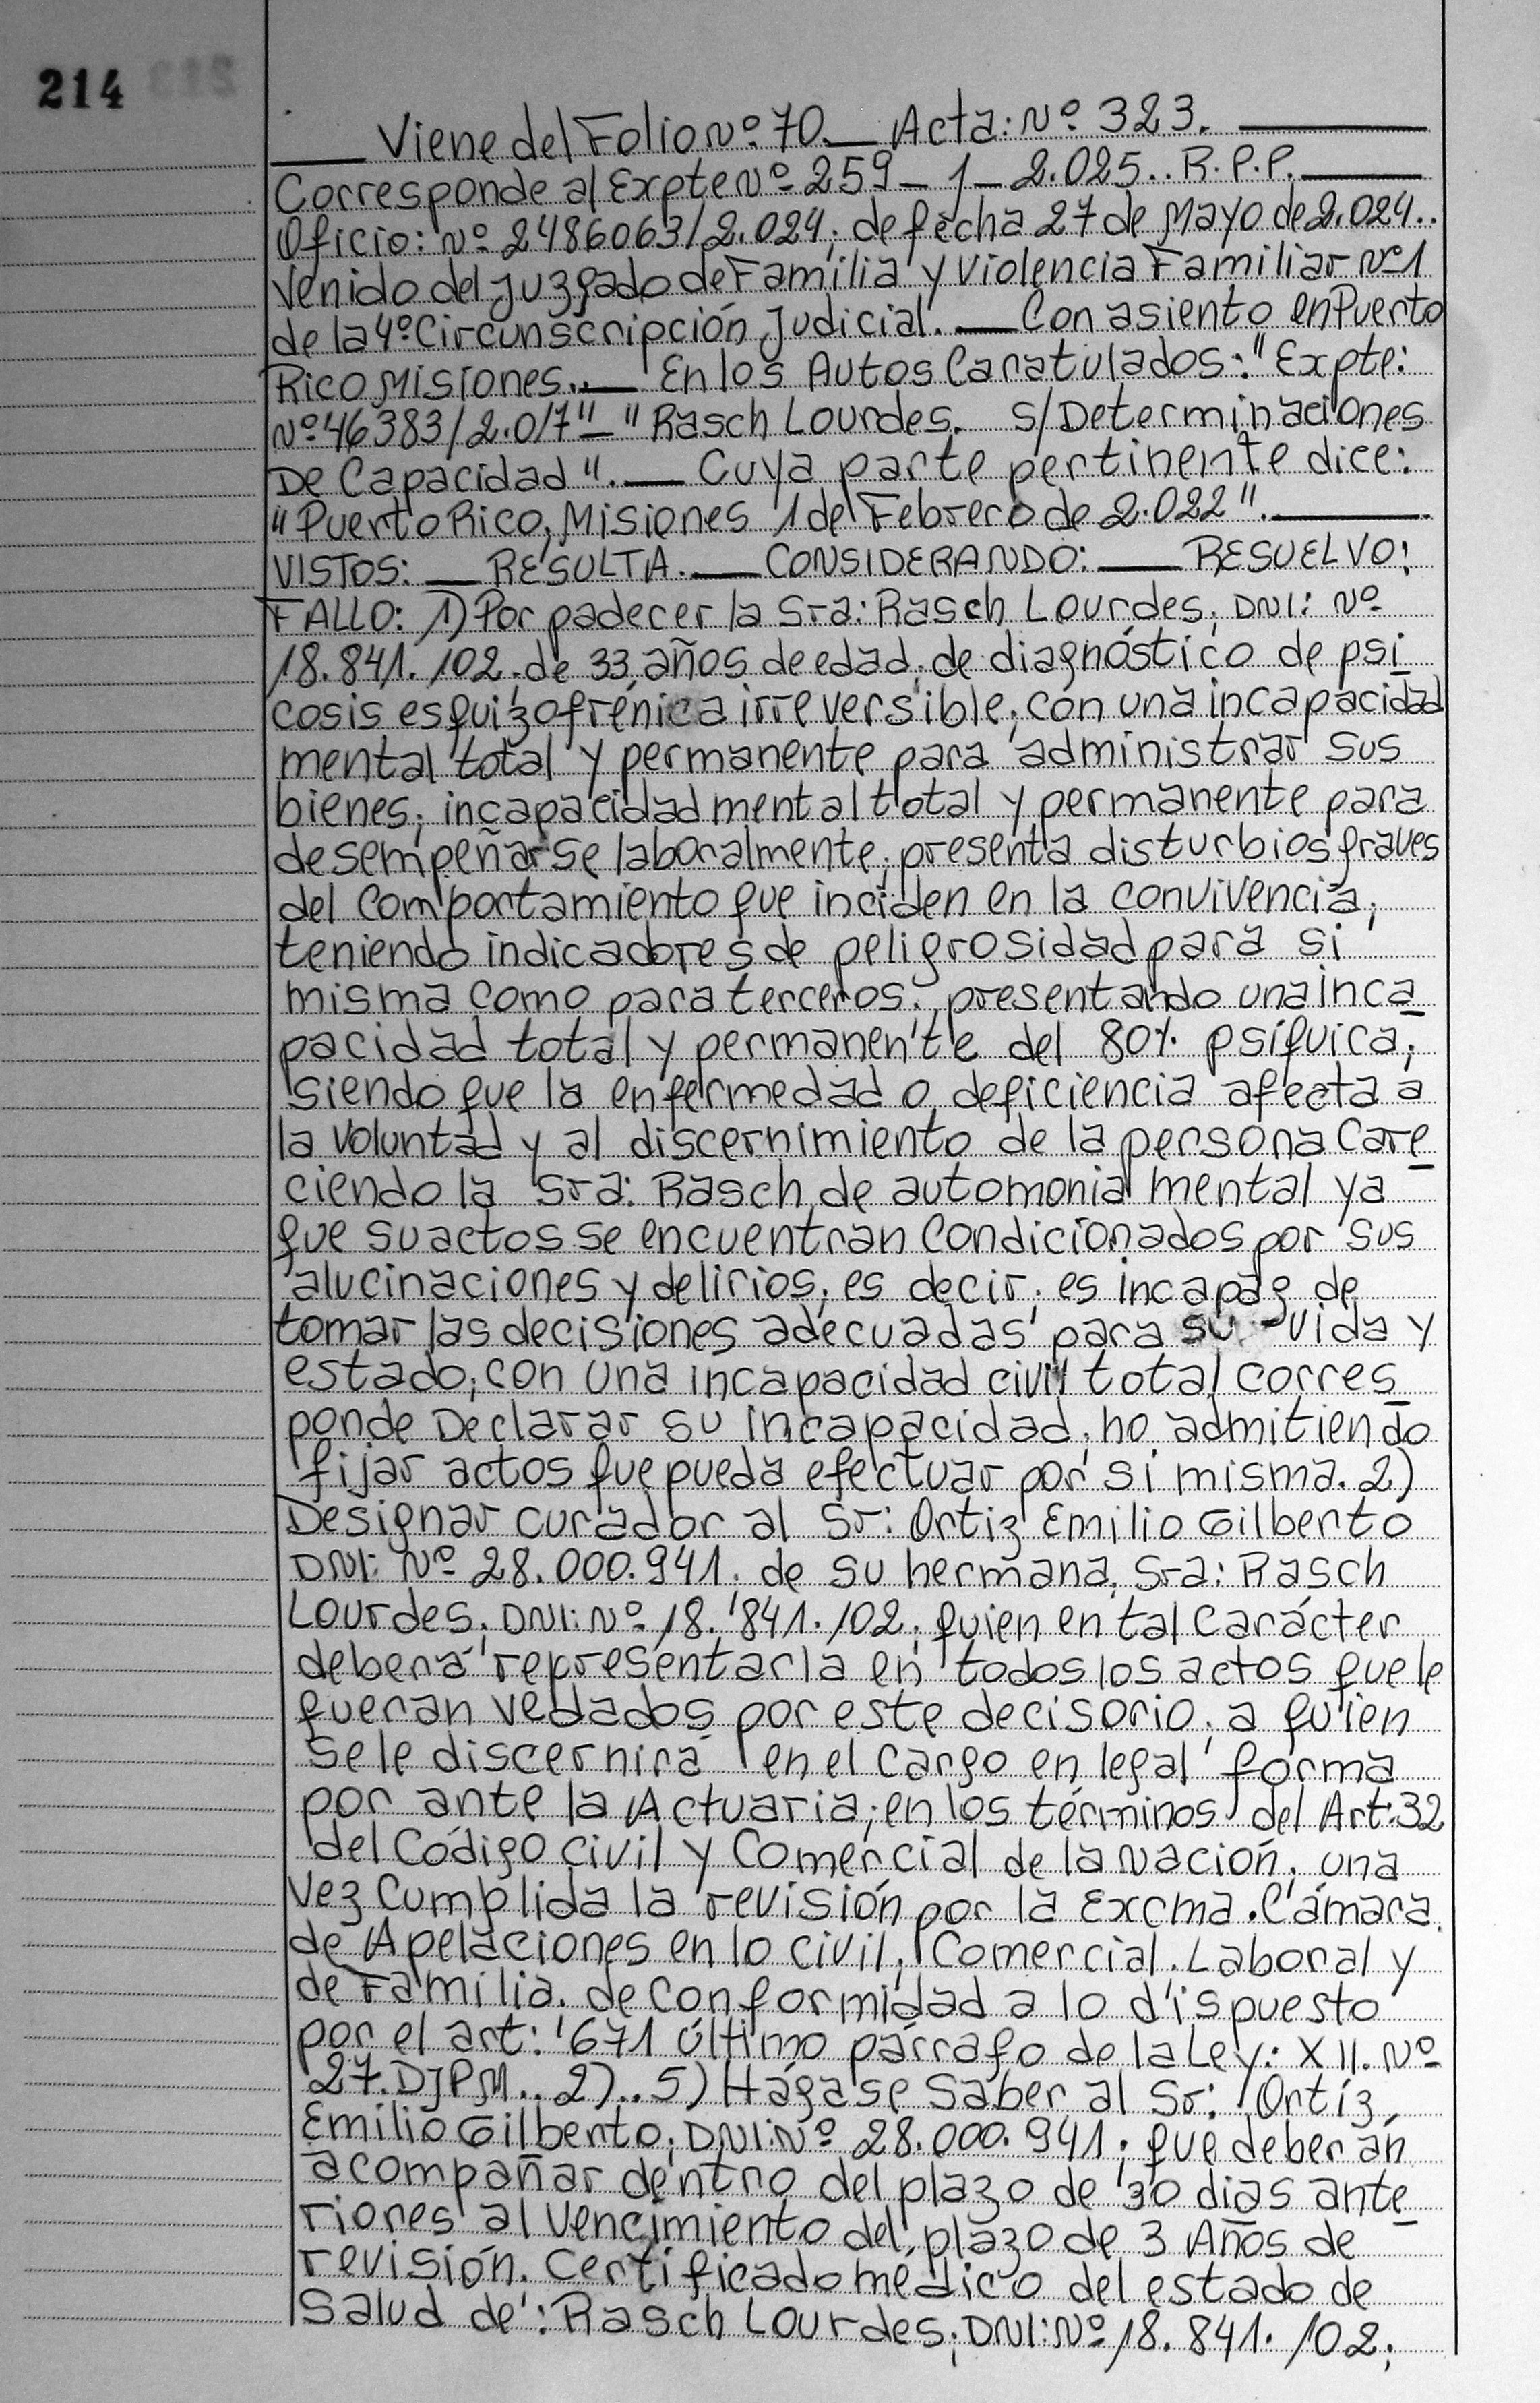 214
Viene del Folio Nº: 70.__ Acta: Nº: 323.
Corresponde al Expte Nº 259_1_2.025.. R.P.P.
Oficio: Nº 2486063/2.024; de fecha 27 de Mayo de 2.024..
Venido del Juzgado de Familia y Violencia Familiar Nº 1
de la 4º Circunscripción Judicial.__ Con asiento en Puerto
Rico Misiones..__ En los Autos Caratulados: "Expte:
Nº 46383/2.017"_ "Rasch Lourdes. S/Determinaciones
De Capacidad".__ Cuya parte pertinente dice:
"Puerto Rico, Misiones 1 de Febrero de 2.022".
VISTOS: __ RESULTA.__ CONSIDERANDO: __ RESUELVO:
FALLO: 1) Por padecer la Sra: Rasch Lourdes; DNI: Nº
18.841.102. de 33 años de edad, de diagnóstico de psi
cosis esquizofrénica irreversible; con una incapacidad
mental total y permanente para administrar sus
bienes; incapacidad mental total y permanente para
desempeñarse laboralmente; presenta disturbios graves
del comportamiento que inciden en la convivencia;
teniendo indicadores de peligrosidad para si
misma como para terceros; presentando una inca
pacidad total y permanente del 80% psíquica;
siendo que la enfermedad o deficiencia afecta a
la voluntad y al discernimiento de la persona Care
ciendo la Sra: Rasch de automonia mental ya
que su actos se encuentran Condicionados por sus
alucinaciones y delirios; es decir; es incapaz de
tomar las decisiones adecuadas para su vida y
estado; con una incapacidad civil total corres
ponde Declarar su incapacidad; no admitiendo
fijar actos que pueda efectuar por si misma. 2)
Designar curador al Sr: Ortiz Emilio Gilberto
DNI: Nº 28.000.941. de su hermana, Sra: Rasch
Lourdes; DNI: Nº 18.841.102; quien en tal Carácter
deberá representarla en todos los actos que le
fueran vedados por este decisorio; a quien
se le discernirá en el Cargo en legal forma
por ante la Actuaria; en los términos del Art: 32
del Código Civil y Comercial de la Nación; una
Vez Cumplida la revisión por la Excma. Cámara
de Apelaciones en lo Civil; Comercial. Laboral y
de Familia. de Conformidad a lo dispuesto
por el art: 671 último párrafo de la Ley: XII. Nº
27. DJPM.. 2)..5) Hágase Saber al Sr: Ortíz
Emilio Gilberto; DNI: Nº 28.000.941; que deberán
acompañar dentro del plazo de 30 dias ante
riores al Vencimiento del plazo de 3 Años de
revisión. Certificado médico del estado de
Salud de: Rasch Lourdes; DNI: Nº 18.841.102;